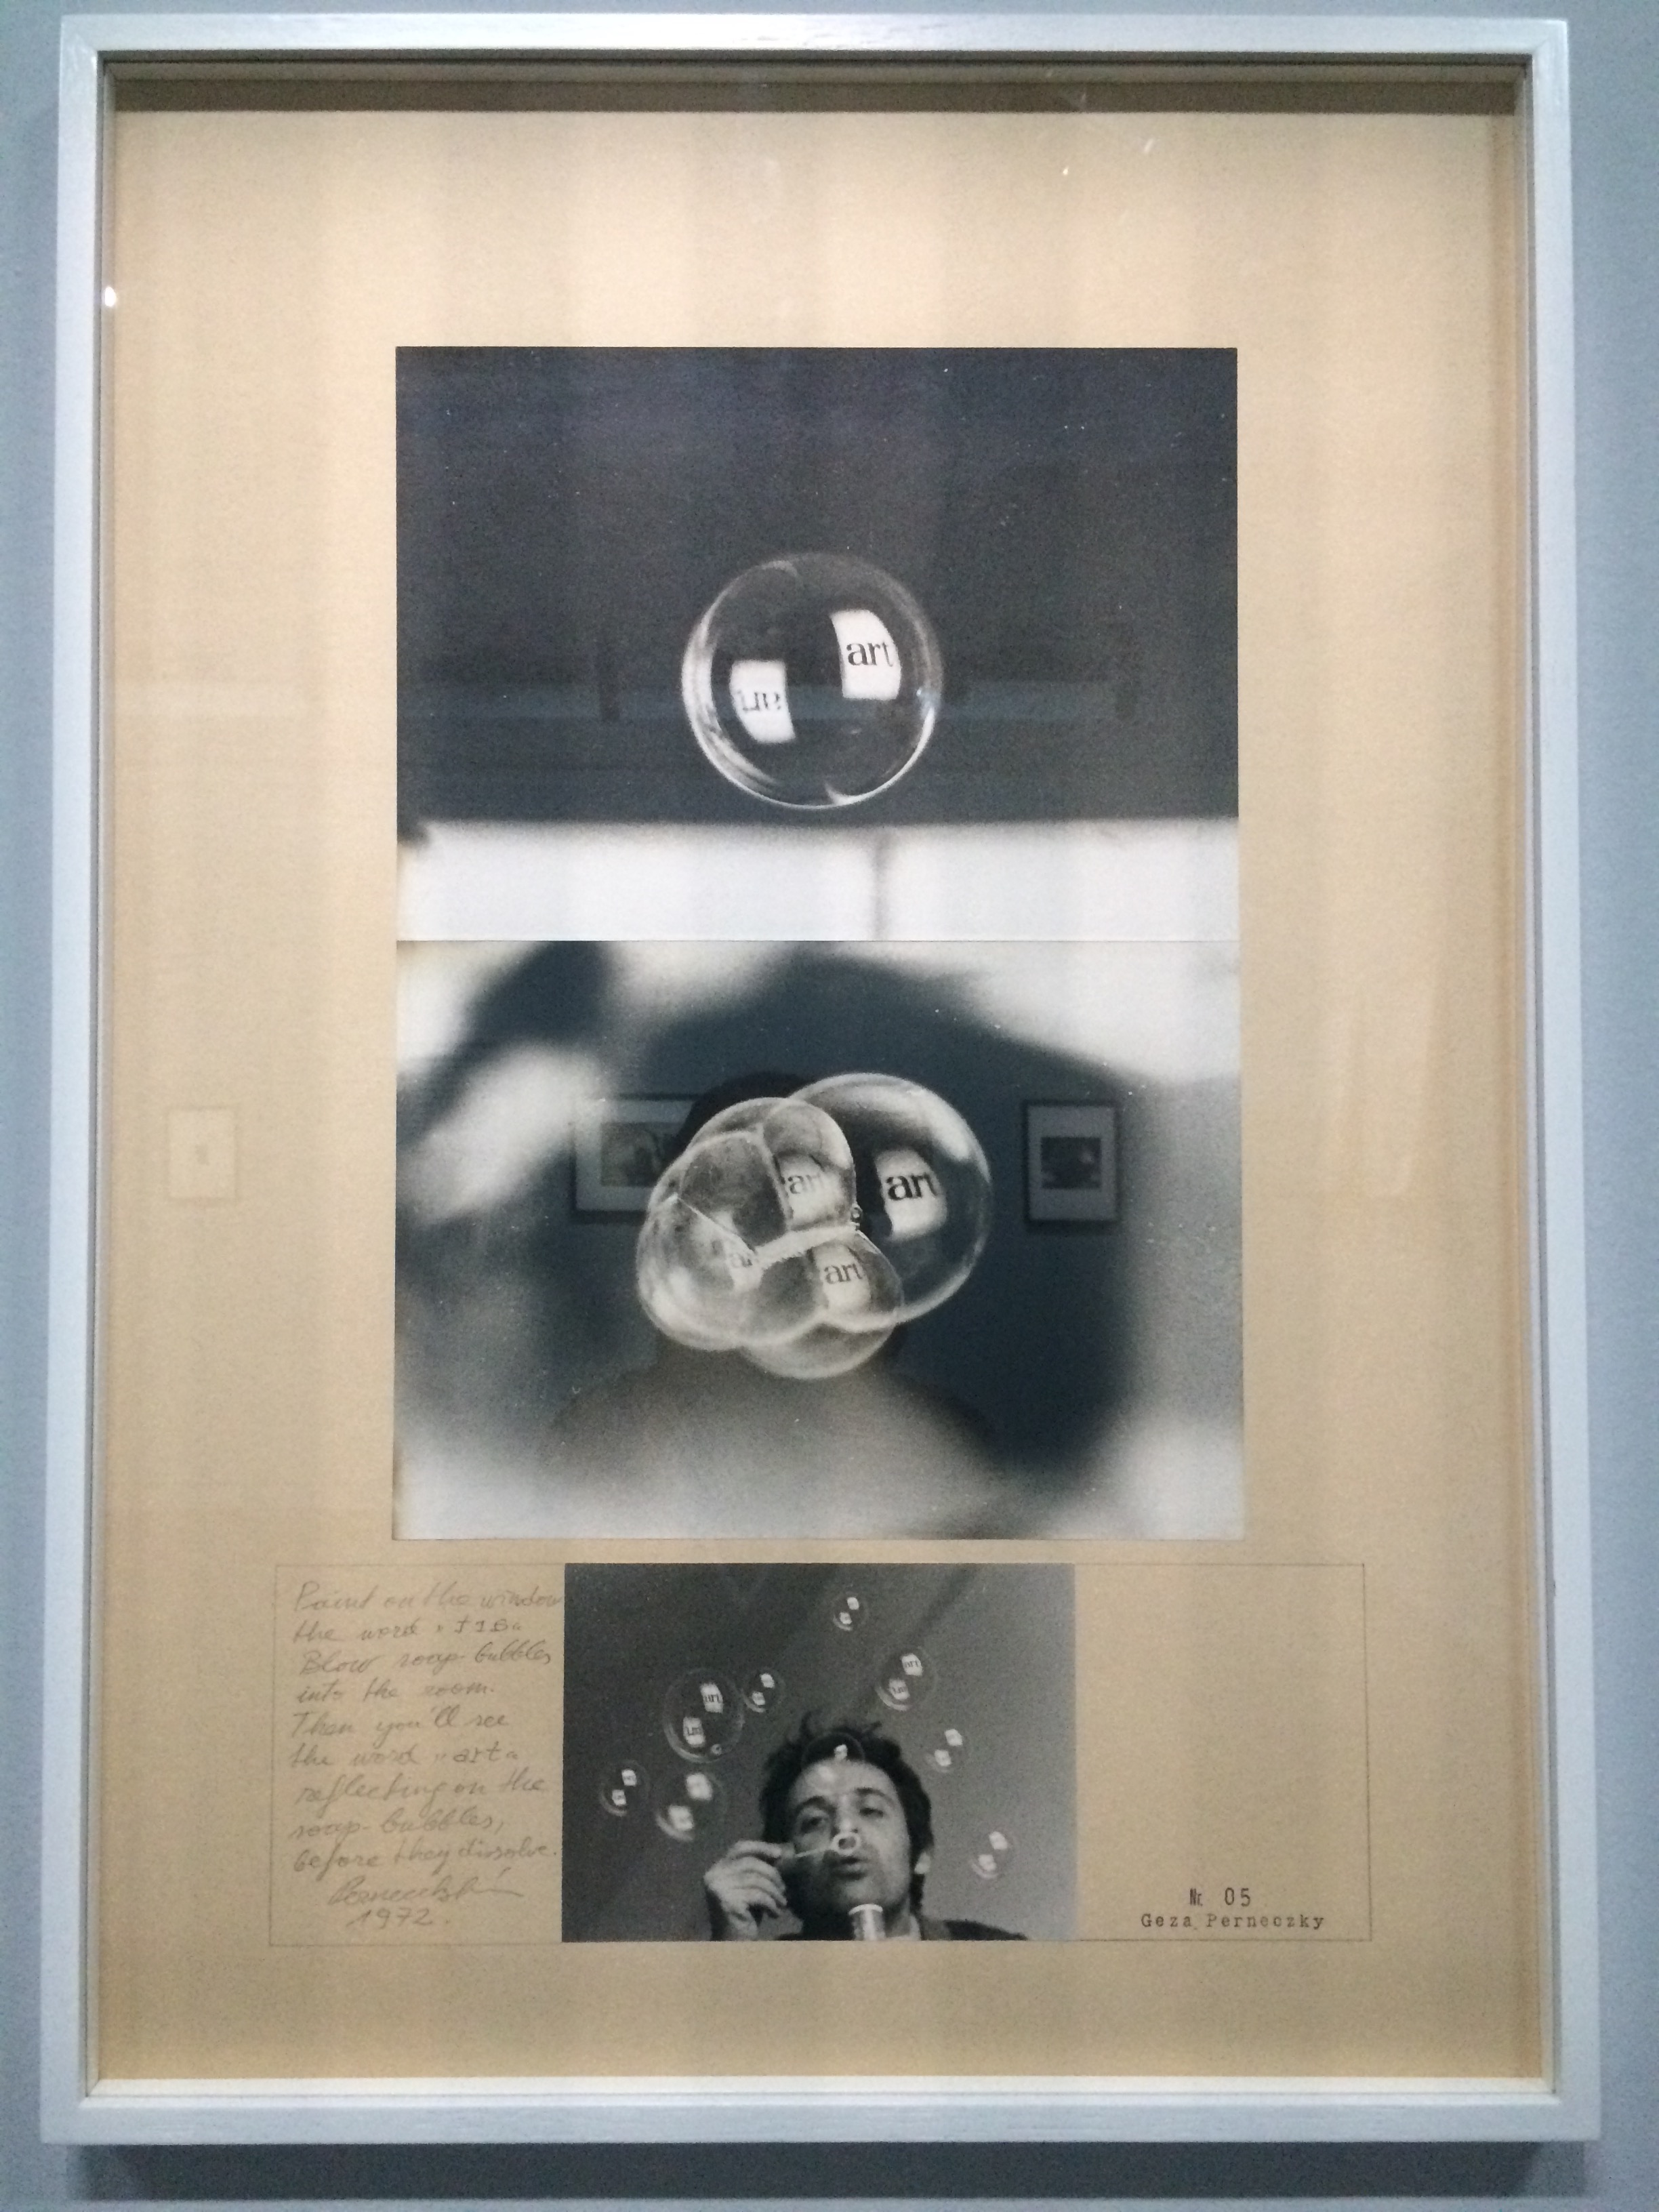 art
art
art
art
art
Paint on the window
the word „ J1B“
Blow soap-bubbles
into the room.
Then you'll see
the word „art“
reflecting on the
soap-bubbles,
before they dissolve.
Perneczky
1972.
art
art
Nr. 05
Geza Perneczky